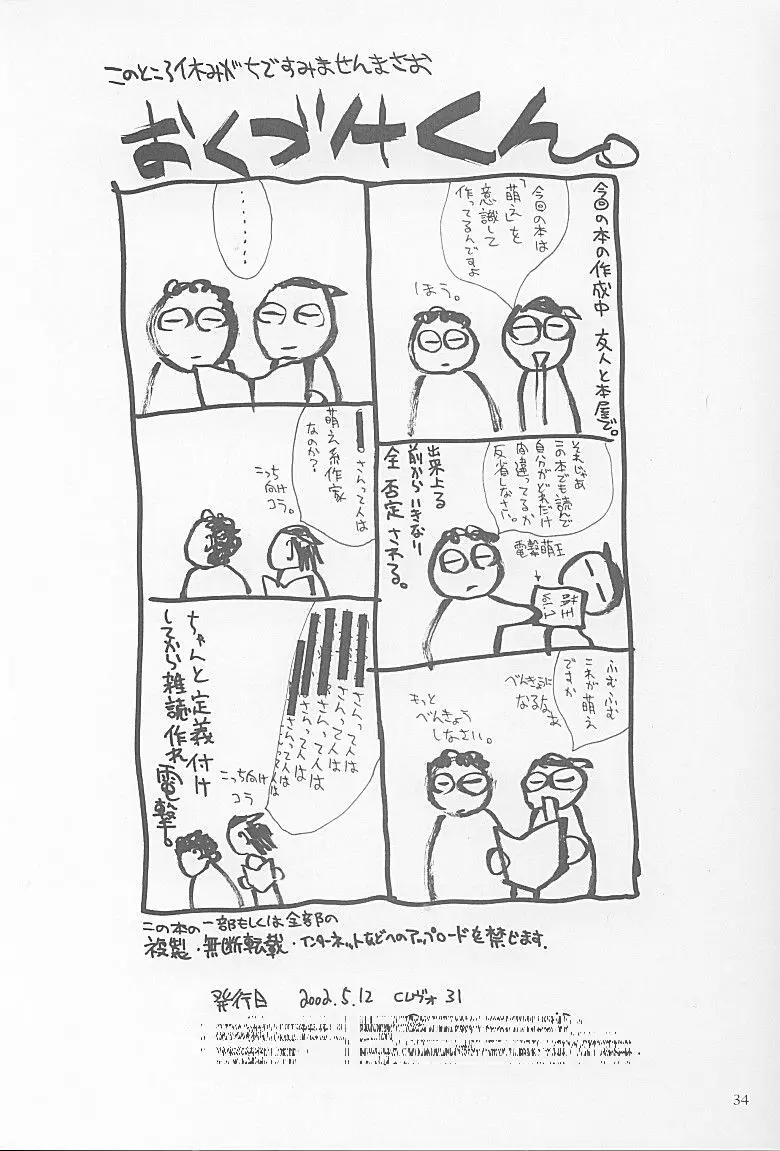 このところ休みがちですみませんまさお
おくづけくん。
今回の本の作成中 友人と本屋で。
今回の本は
「萌え」を
意識して
作ってるんですよ
ほう。
この本でも読んで
自分がどれだけ
間違ってるか
反省しなさい。
電撃萌王
出来上る
前からいきなり
全否定される。
ふむふむ
これが萌え
ですか
べんきょうに
なるなぁ
もっと
べんきょう
しなさい。
・・・・・・・
さんって人は
萌え系作家
なのか?
こっち
向け
コラ。
さんって人は
さんって人は
さんって人は
さんって人は
さんって人は
こっち向け
コラ
ちゃんと定義付け
してから雑誌作れ
電撃。
この本の一部もしくは全部の
複製・無断転載・インターネットなどへのアップロードを禁じます.
発行日 2002.5.12 CLヴォ31
34